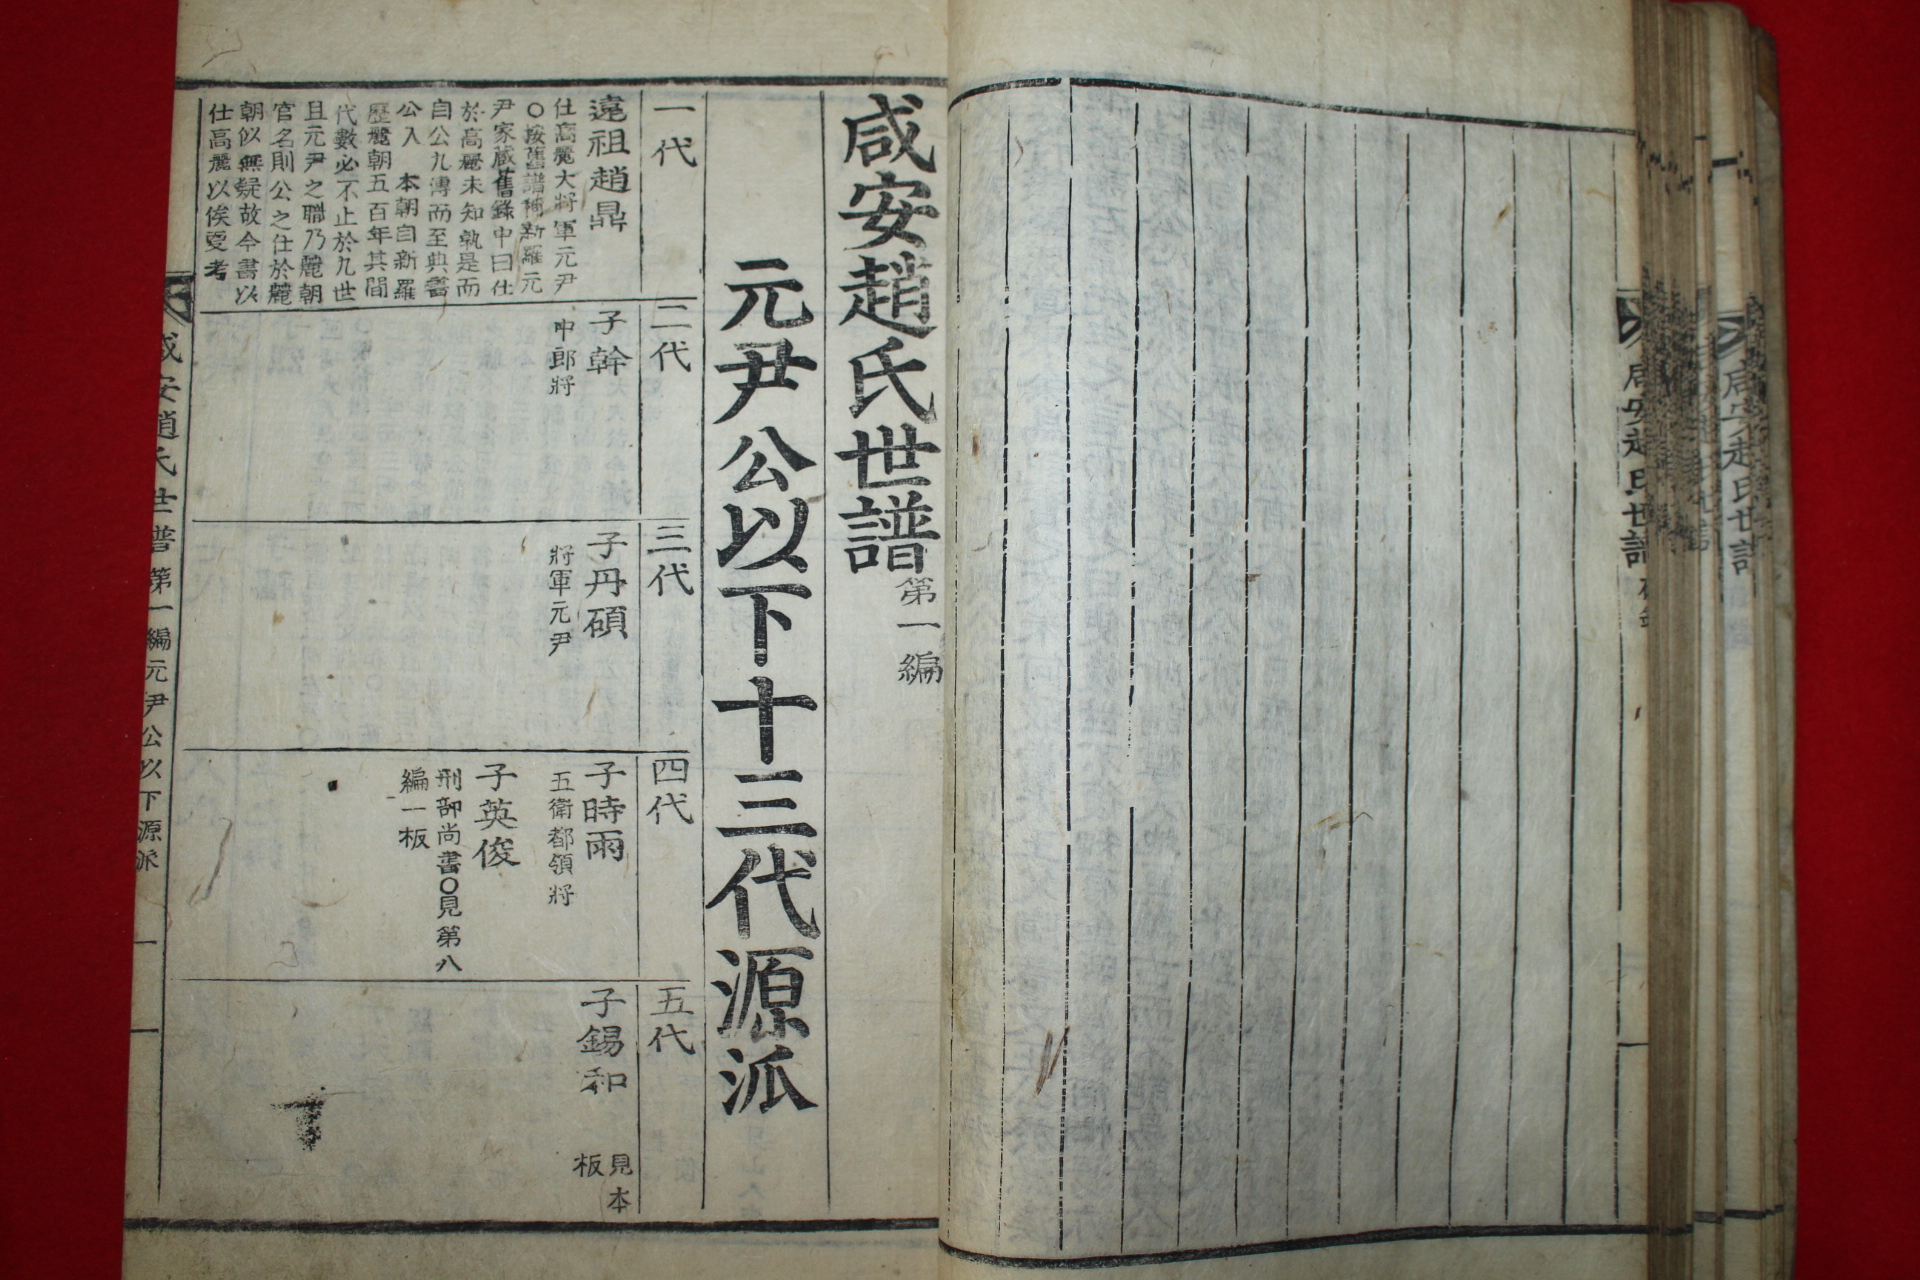 咸安趙氏世譜 第一編
元尹公以下十三代源派
一代
遠祖趙鼎
仕高麗大將軍元尹
○按舊譜補新羅元
尹家藏舊錄中曰仕
於高麗未知孰是而
自公九傳而至典書
公入 本朝自新羅
歷麗朝五百年其間
代數必不止於九世
且元尹之職乃麗朝
官名則公之仕於麗
朝似無疑故今書以
仕高麗以俟更考
二代
子幹
中郎將
三代
子丹碩
將軍元尹
四代
子時雨
五衛都領將
子英俊
刑部尚書○見第八
編一板
五代
子錫和
見本
板
咸安趙氏世譜第一編元尹公以下源派 一
咸安趙氏世譜
咸安趙氏世譜